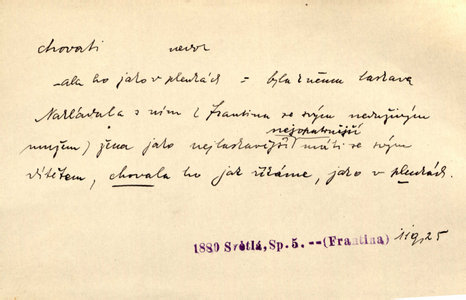 chovati nedok
-ala ho jako v plenkách = byla k němu laskava
Nakládala s ním (Frantina se svým neduživým
nejopatrnější
mužem) jina jako nejlaskavější máti se svým
dítětem, chovala ho jak říkáme, jako v plenkách.
1880 Světlá, Sp. 5. --(Frantina) 119,25